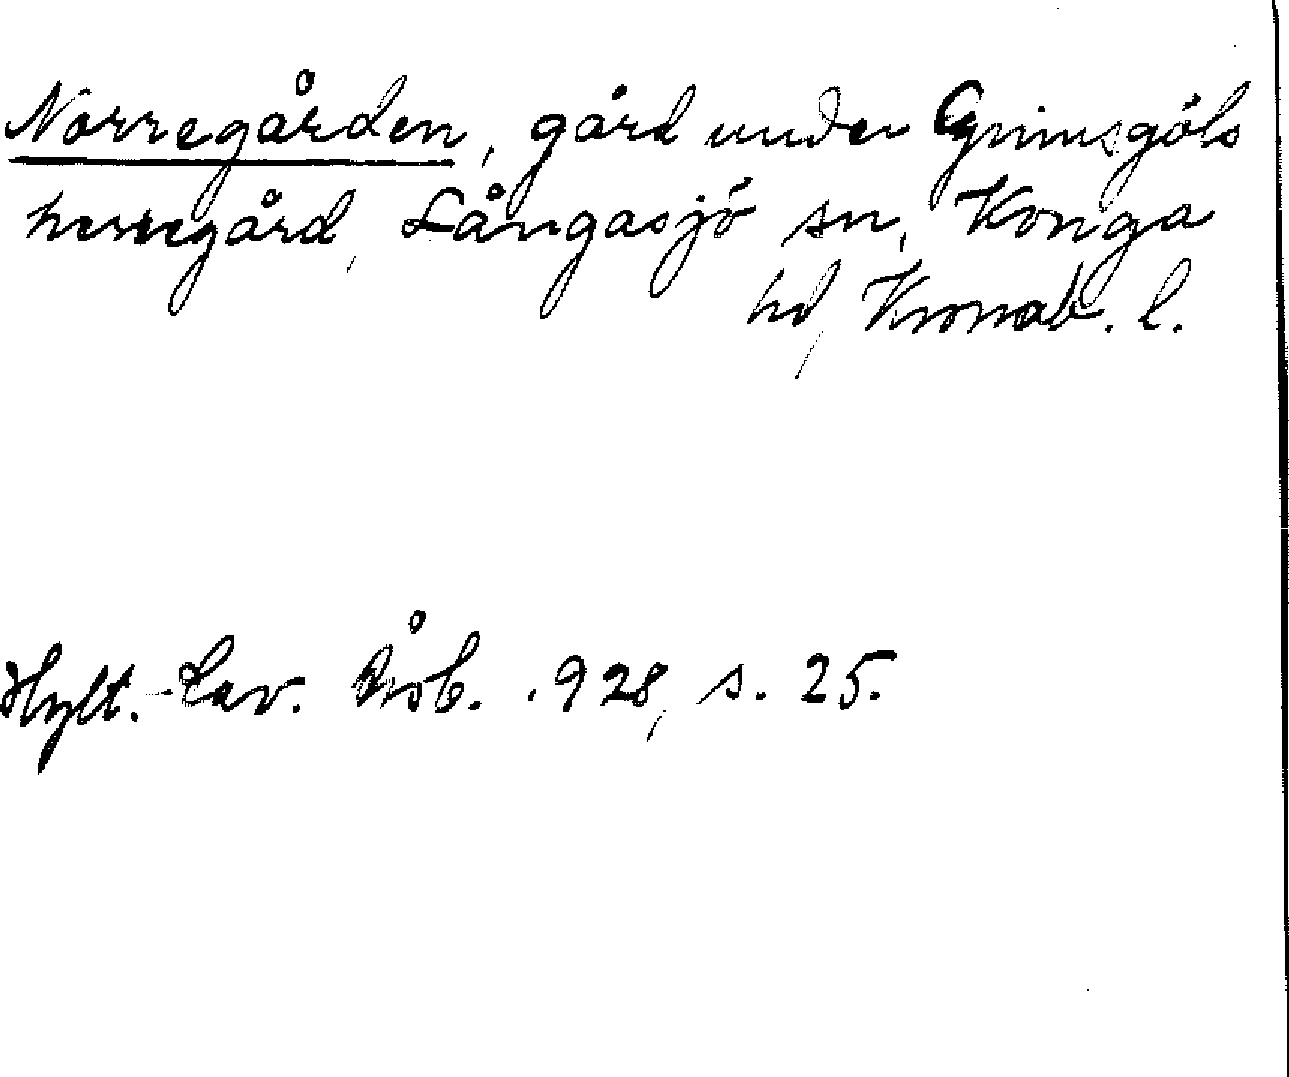 Norregården, gård under Grimsgöls
herregård, Långasjö sn, Konga
hd, Kronob. l.
Hylt.-Cav. Årsb. 1928, s. 25.